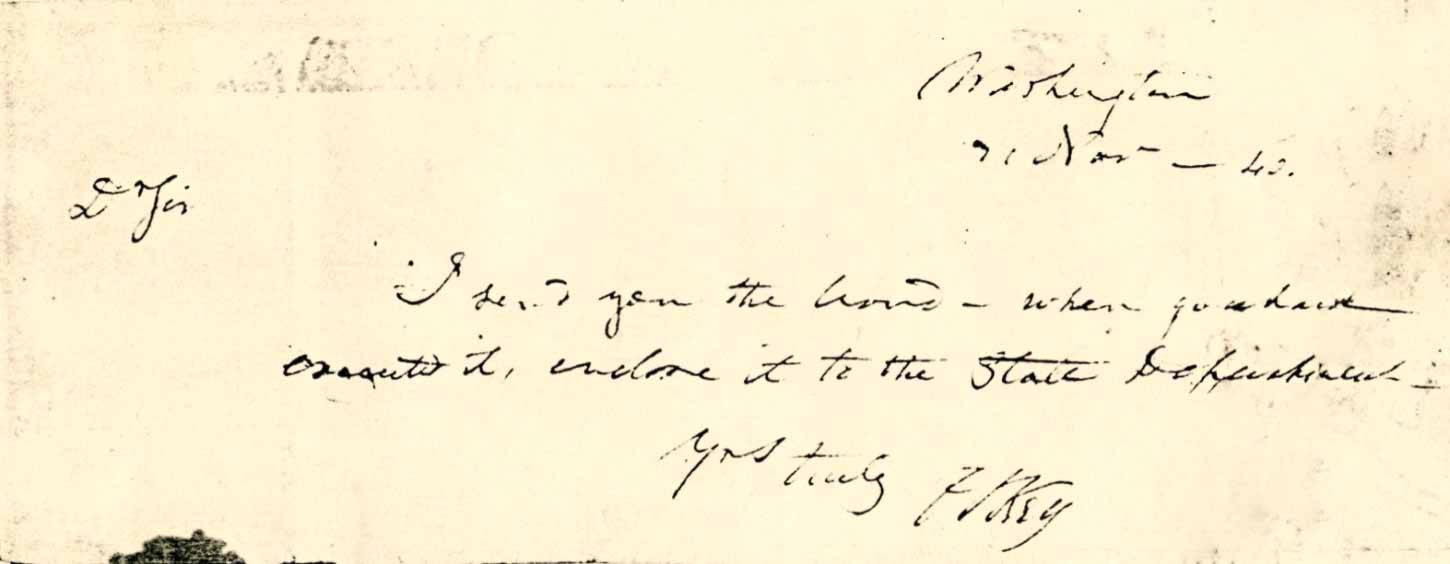 Washington
21 Nov - 40.
Dr Sir
I send you the bond - when you have
executed it, enclose it to the State Department -
Yrs truly F S Key